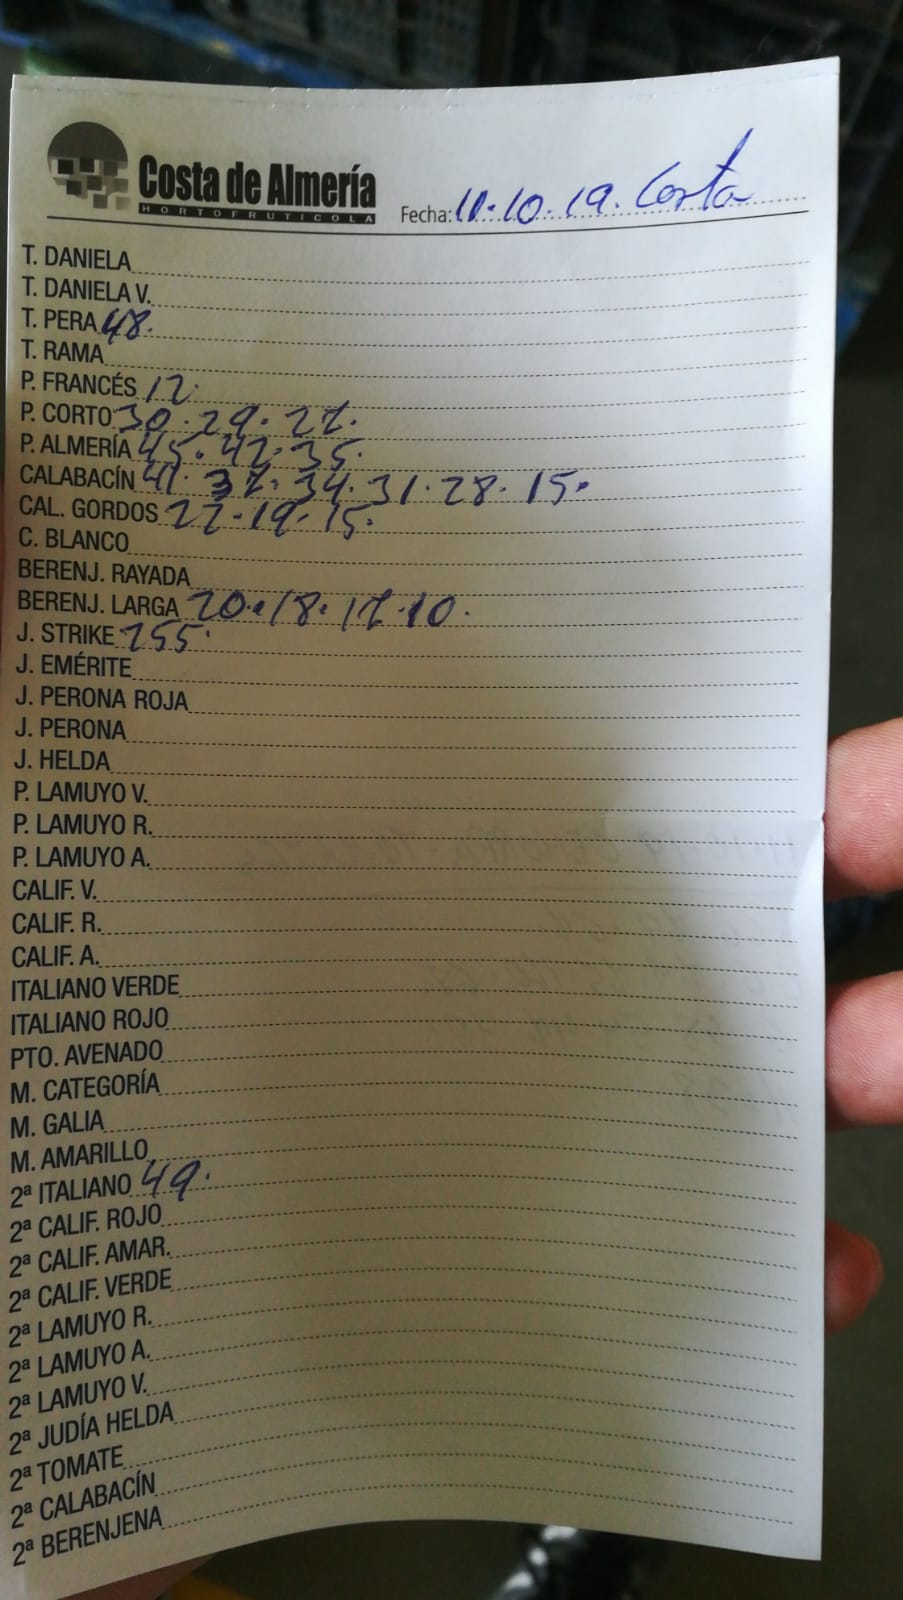 Costa de Almería
HORTOFRUTICOLA
Fecha: 11.10.19. Costa
T. DANIELA
T. DANIELA V.
T. PERA 48.
T. RAMA
P. FRANCÉS 12.
P. CORTO 30.29.27.
P. ALMERÍA 45.42.35.
CALABACÍN 41.37.34.31.28.15.
CAL. GORDOS 22.19.15.
C. BLANCO
BERENJ. RAYADA
BERENJ. LARGA 20.18.17.10.
J. STRIKE 255.
J. EMÉRITE
J. PERONA ROJA
J. PERONA
J. HELDA
P. LAMUYO V.
P. LAMUYO R.
P. LAMUYO A.
CALIF. V.
CALIF. R.
CALIF. A.
ITALIANO VERDE
ITALIANO ROJO
PTO. AVENADO
M. CATEGORÍA
M. GALIA
M. AMARILLO
2ª ITALIANO 49.
2ª CALIF. ROJO
2ª CALIF. AMAR.
2ª CALIF. VERDE
2ª LAMUYO R.
2ª LAMUYO A.
2ª LAMUYO V.
2ª JUDÍA HELDA
2ª TOMATE
2ª CALABACÍN
2ª BERENJENA